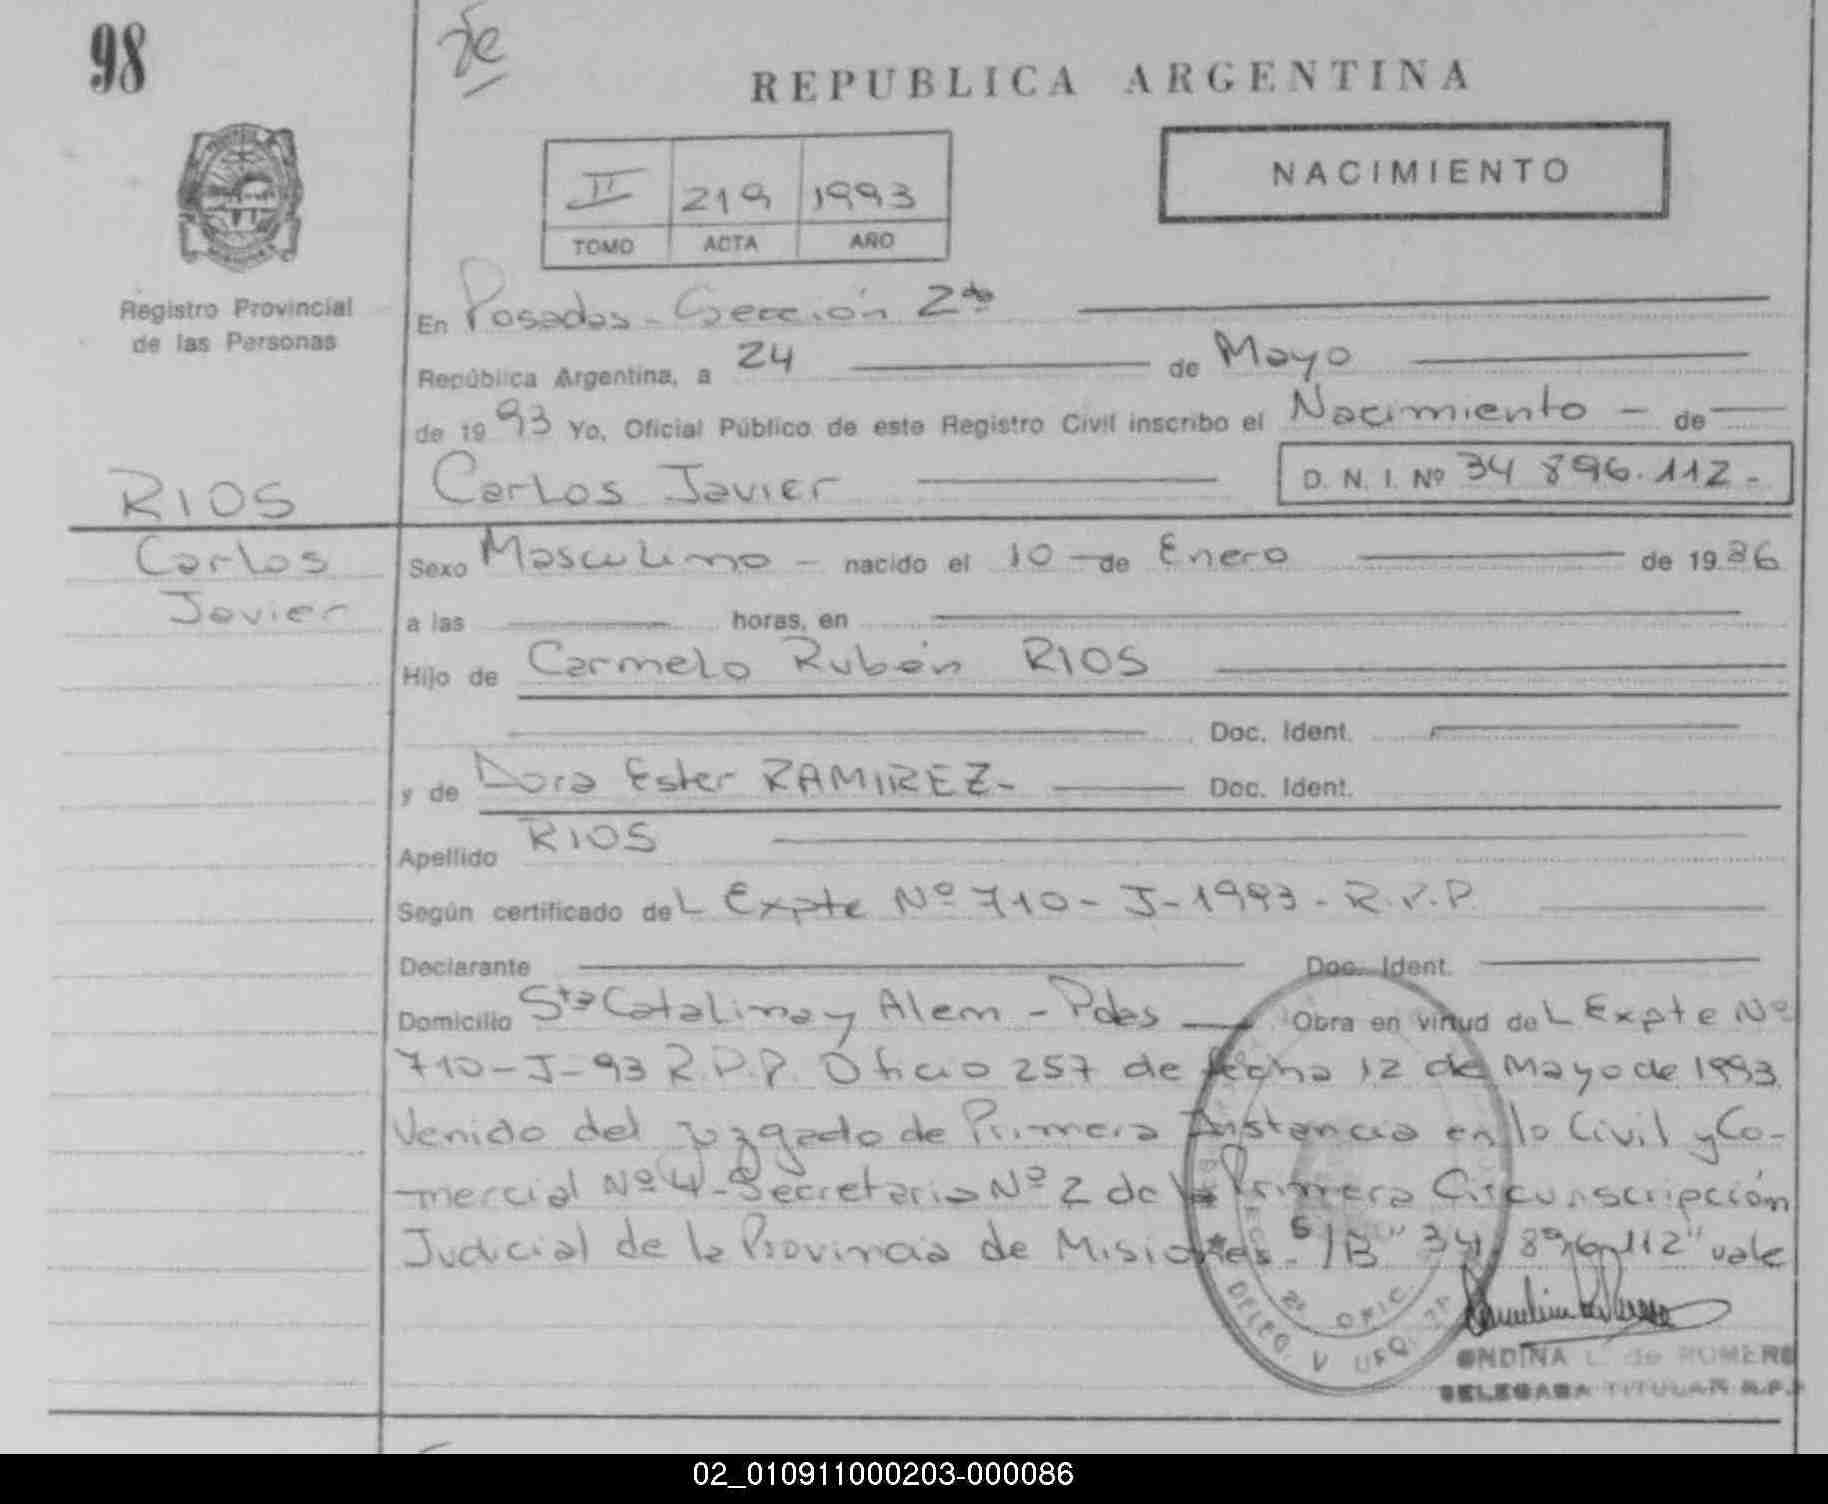 98
REPUBLICA ARGENTINA
II 219 1993
TOMO ACTA AÑO
NACIMIENTO
Registro Provincial
de las Personas
En Posadas - Sección 2da
República Argentina, a 24 de Mayo
de 1993 Yo, Oficial Público de este Registro Civil inscribo el Nacimiento - de
RIOS
Carlos Javier
D. N. I. Nº 34 896.112.-
Carlos
Javier
Sexo Masculino - nacido el 10 - de Enero de 1986
a las horas, en
Hijo de Carmelo Rubén RIOS
Doc. Ident.
y de Dora Ester RAMIREZ- Doc. Ident.
Apellido RIOS
Según certificado del Expte Nº 710- J-1993- R.P.P.
Declarante Doc. Ident.
Domicilio Sta Catalina y Alem - Pdas Obra en virtud del Expte Nº
710-J-93 R.P.P. Oficio 257 de fecha 12 de Mayo de 1993
Venido del juzgado de Primera Instancia en lo Civil y Co-
mercial Nº 4 - Secretaria Nº 2 de la Primera Circunscripción
Judicial de la Provincia de Misiones - S/B "34.896.112" vale
2ª OFIC.
ONDINA L. de ROMERO
DELEGADA TITULAR R.P.P.
02_010911000203-000086